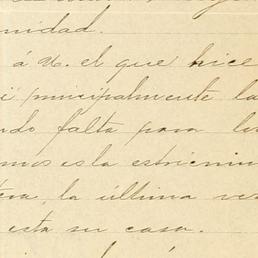 nidad.
á U. el que hice
principalmente la
ndo falta para los
mos es la estricnin
tera, la última ve
esta su casa.